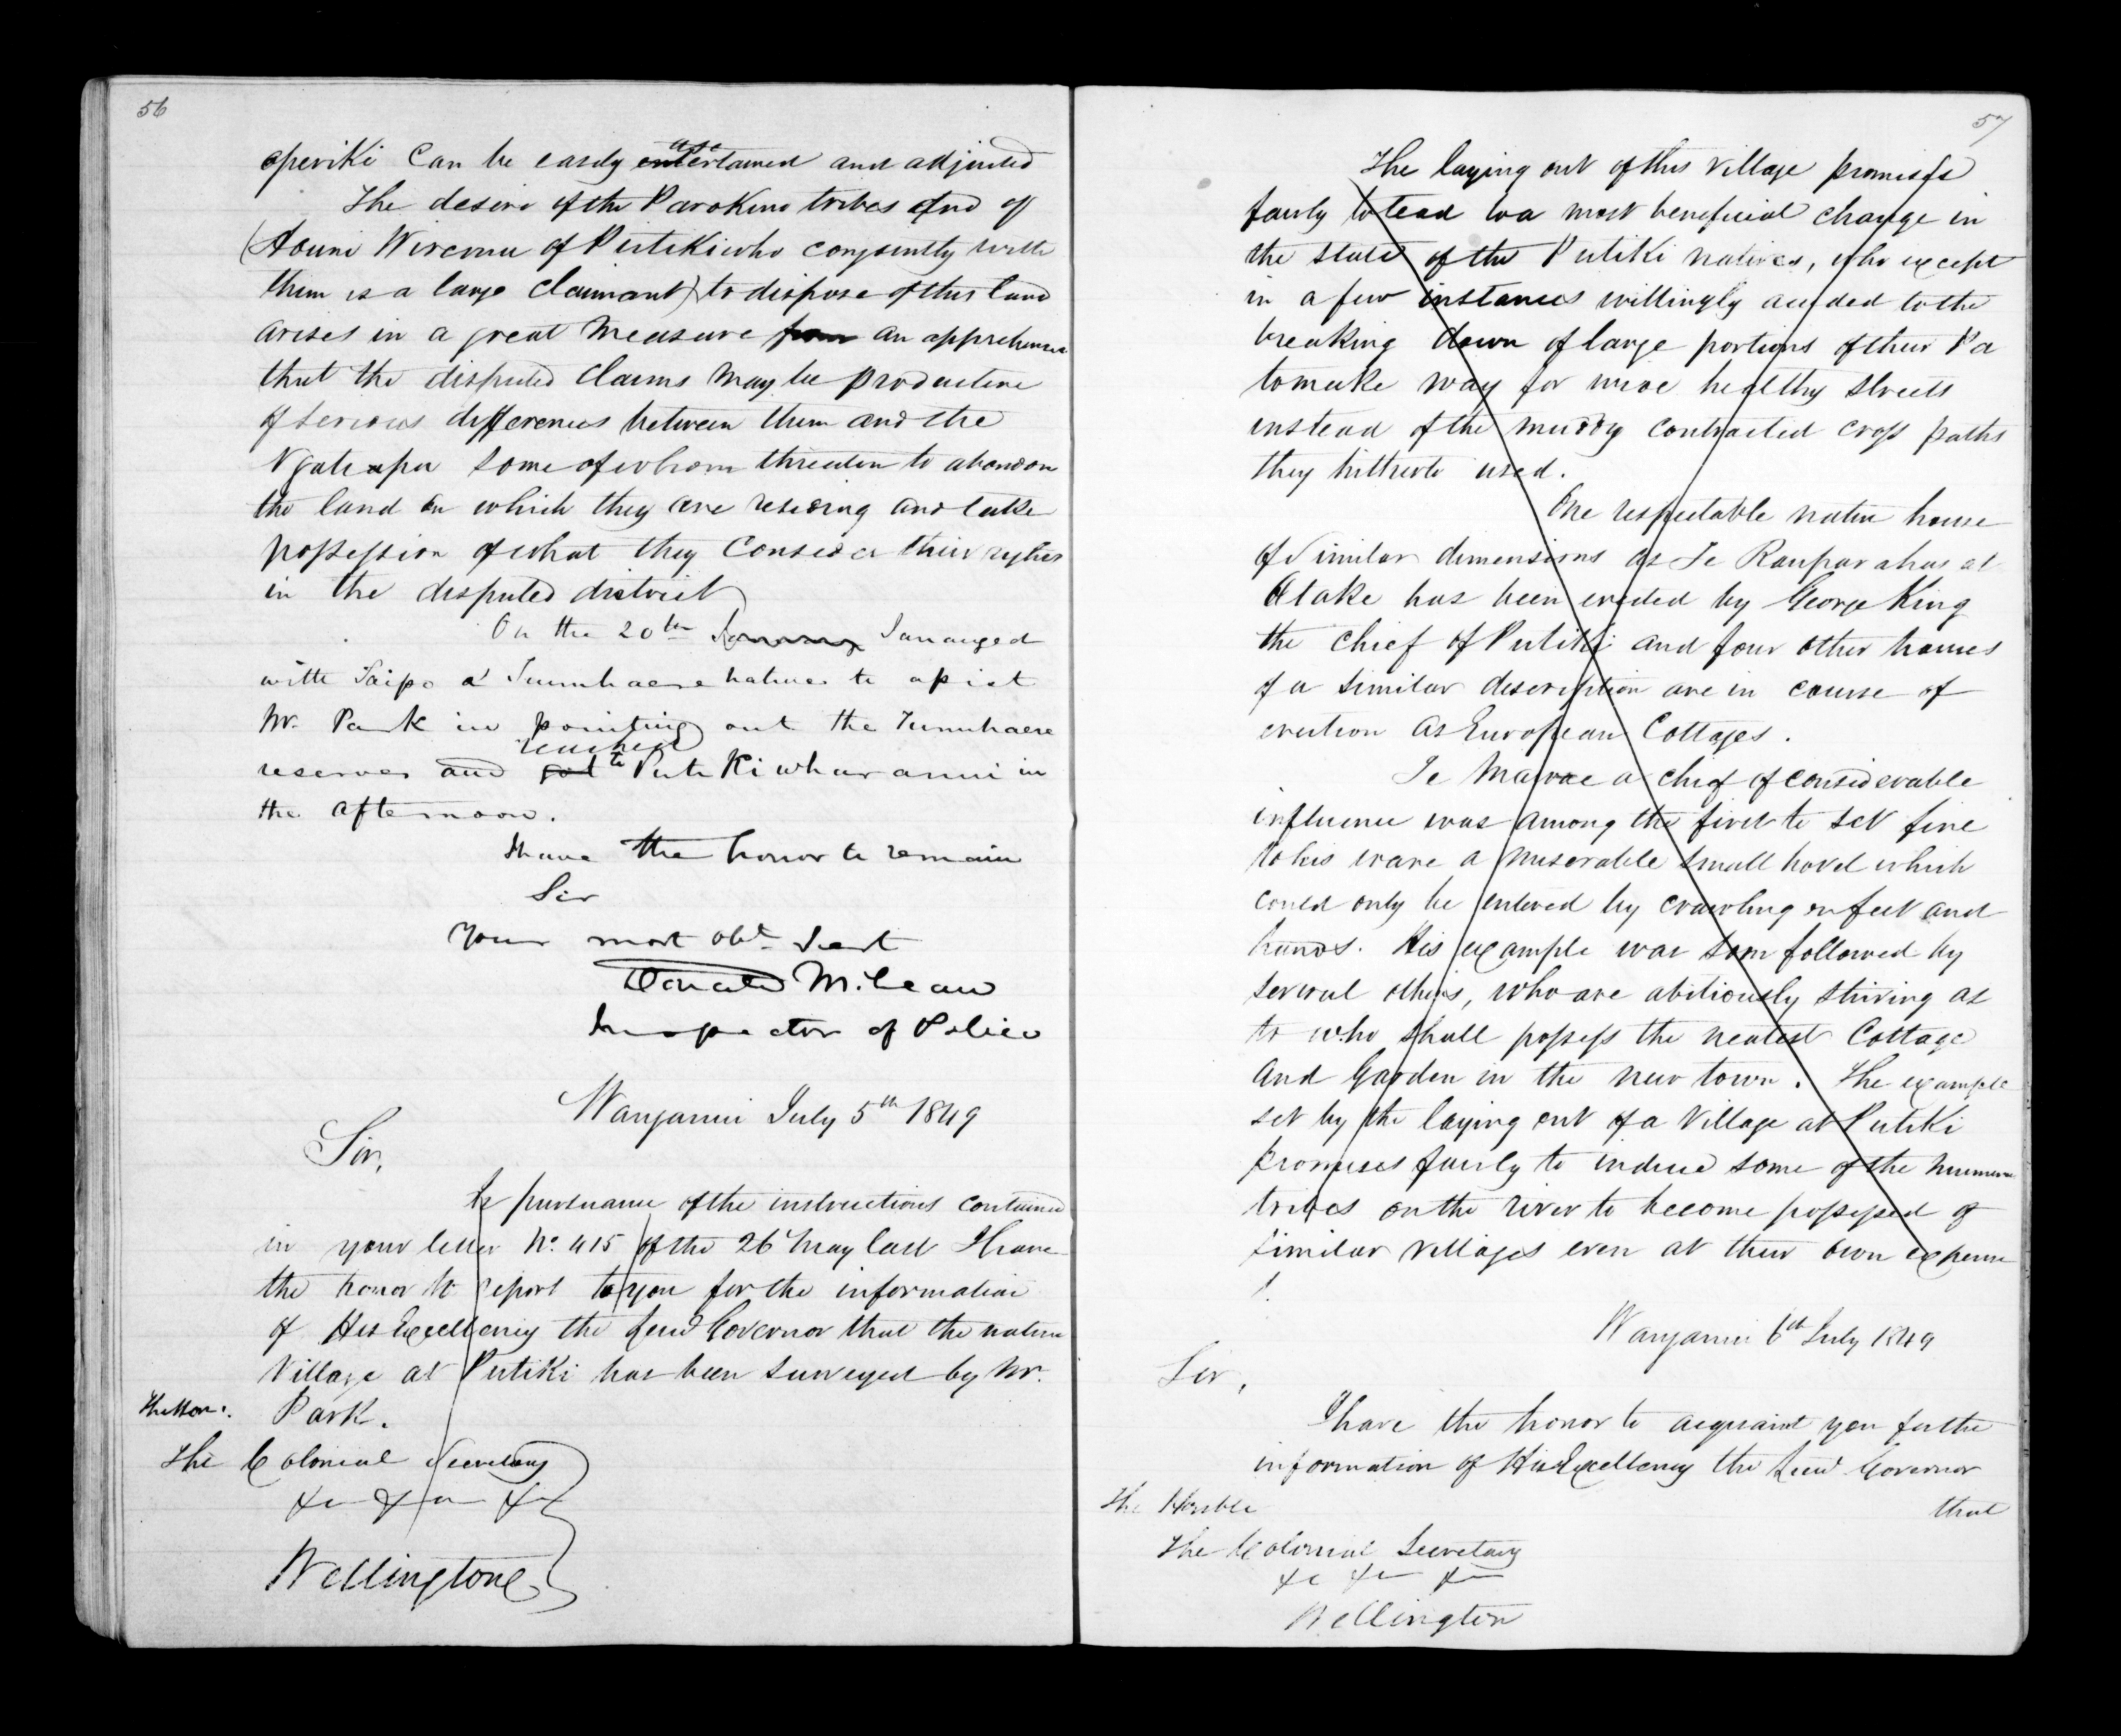 56
operiki can be easily ascertained and adjusted
The desire of the Parokino tribes and of
(Houni Wiremu of Putiki who conjointly with
them is a large claimant) to dispose of this land
arises in a great measure from an apprehension
that the disputed claims may be productive
of serious differences between them and the
Ngateapa some of whom threaten to abandon
the land on which they are residing and take
possession of what they consider their rights
in the disputed district
On the 20th I arranged
with Paipo a Tunuhaere native to assist
Mr. Park in pointing out the Tunuhaere
reserves and reached
to Putiki wharanui in
the afternoon.
I have the honor to remain
Sir
Your most obt. Servt
Donald McLean
Inspector of Police
Wanganui July 5th 1849
Sir,
In pursuance of the instructions contained
in your letter No. 415 of the 26 May last I have
the honor to report to you for the information
of His Excellency the Lieut Governor that the native
Village at Putiki has been surveyed by Mr.
Park.
The Hon:
The Colonial Secretary
&c &c &c
Wellington
57
The laying out of this village promises
fairly to lead to a most beneficial change in
the state of the Putiki natives, who except
in a few instances willingly acceded to the
breaking down of large portions of their Pa
to make way for wide healthy streets
instead of the muddy contracted cross paths
they hitherto used.
One respectable native house
of similar dimensions as Te Rauparahas at
Otake has been erected by George King
the chief of Putiki and four other houses
of a similar description are in course of
erection as European Cottages.
Te Mawae a chief of considerable
influence was among the first to set fire
to his ware a miserable small hovel which
could only be entered by crawling on feet and
hands. His example was soon followed by
several others, who are abitiously striving as
to who shall possess the neatest Cottage
and Garden in the new town. The example
set by the laying out of a Village at Putiki
promises fairly to induce some of the numerous
tribes on the river to become possessed of
similar villages even at their own expense
Wanganui 6th July 1849
Sir,
I have the honor to acquaint you for the
information of His Excellency the Lieut Governor
that
The Honble
The Colonial Secretary
&c &c &c
Wellington